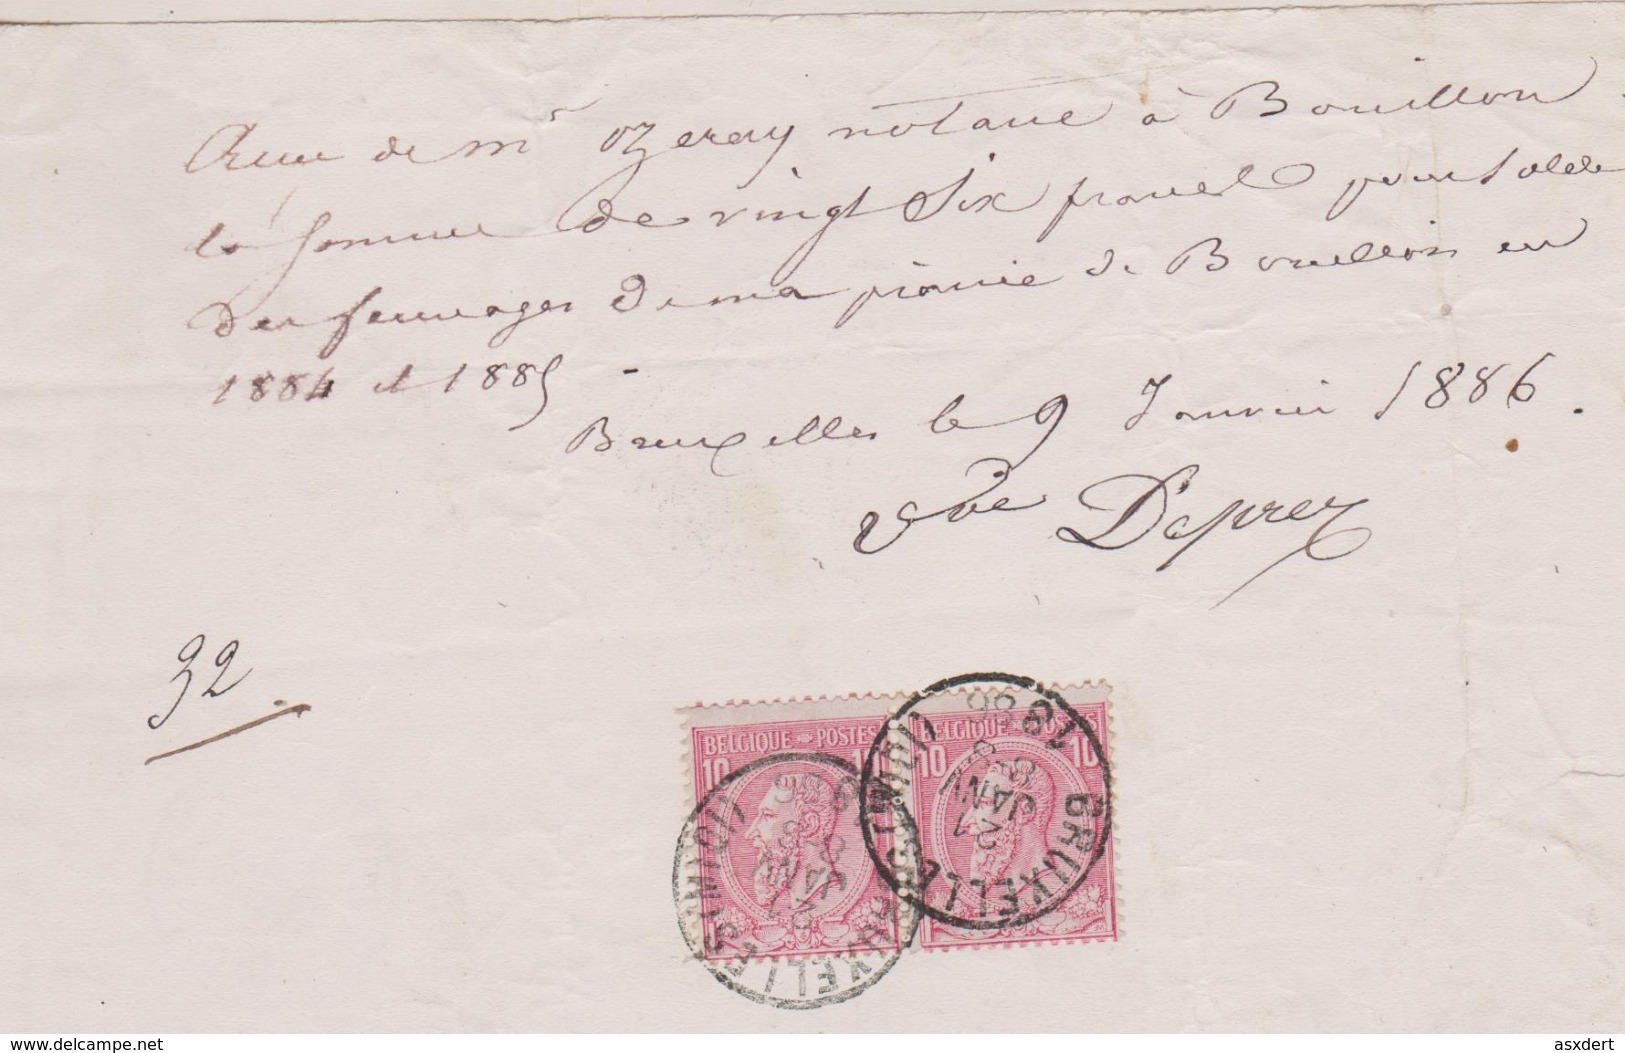 Reçu de mr Ozeray notaire à Bouillon
la somme de vingt six francs pour solde
des fermages de ma prairie de Bouillon en
1884 et 1885 -
Bruxelles le 9 Janvier 1886.
Vve Deprez
32
BELGIQUE POSTES
10 10
BELGIQUE POSTES
10 10
BRUXELLES (MIDI)
21 JANV 8-9 1886
BRUXELLES (MIDI)
21 JANV
www.delcampe.net
asxdert